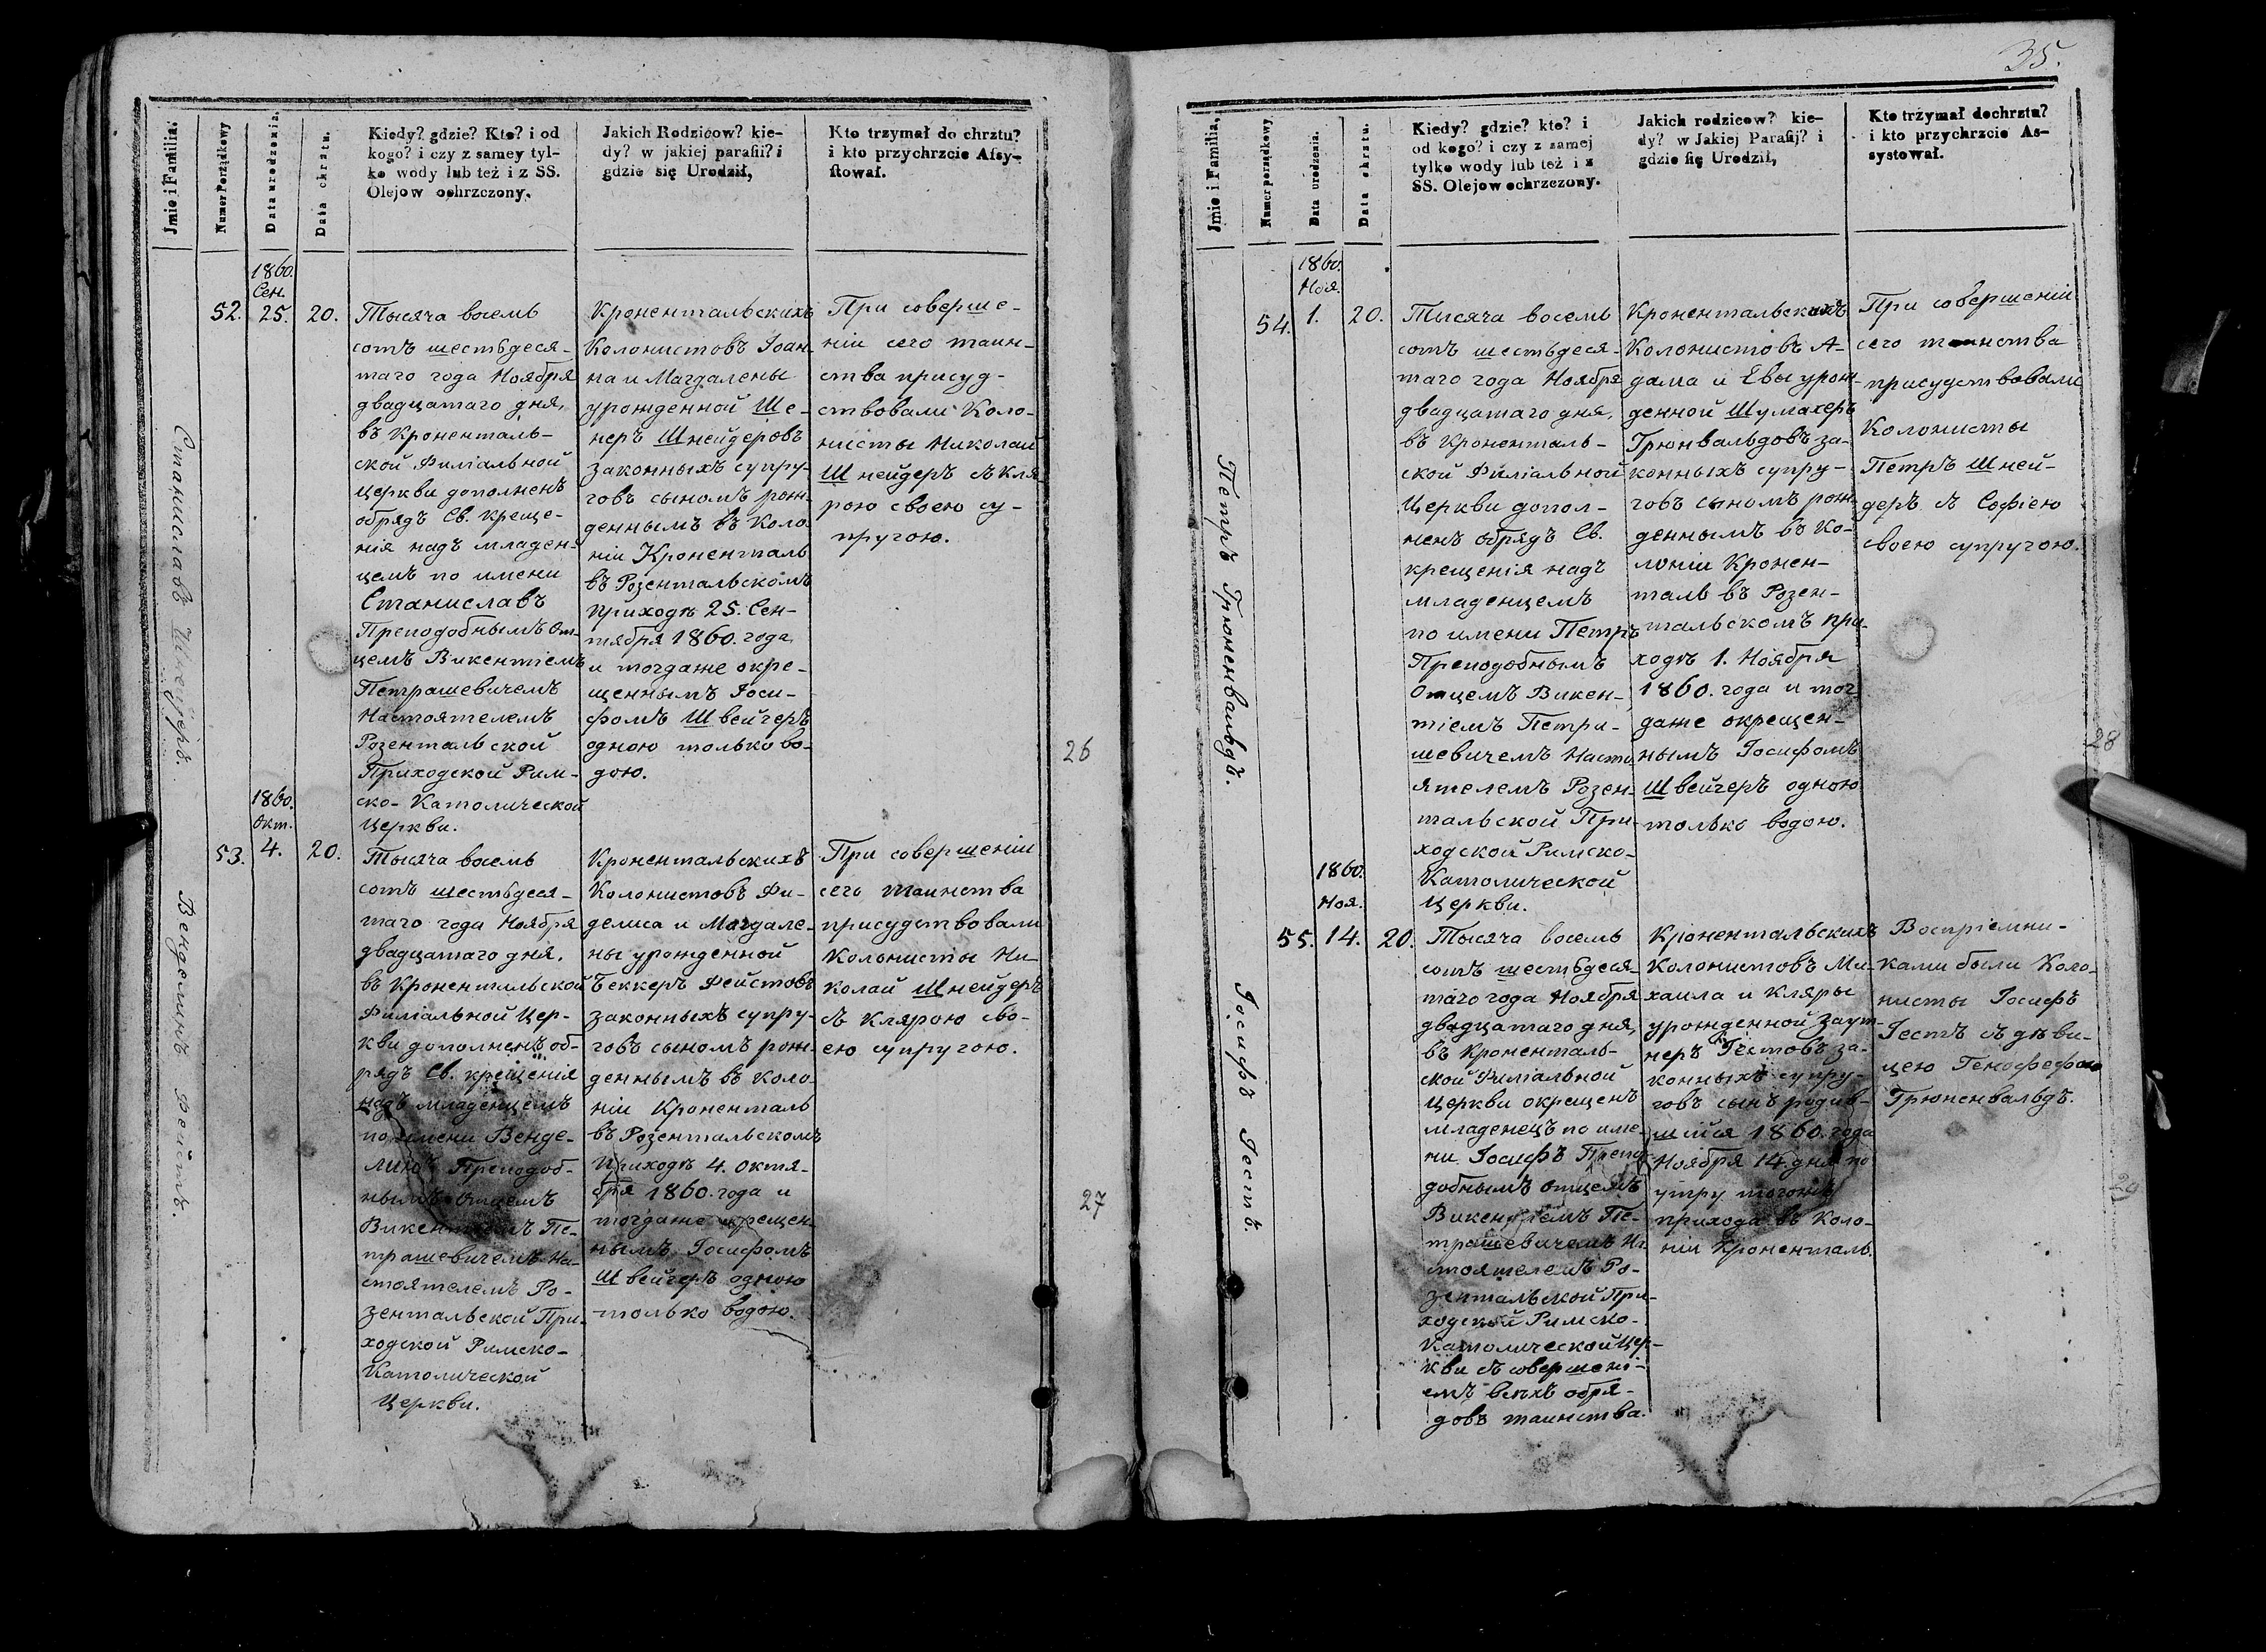 35.
Jmie i Familia.
Numer Porządkowy
Data urodzenia.
Data chrztu.
Kiedy? gdzie? Kto? i od
kogo? i czy z samey tyl-
ko wody lub też i z SS.
Olejow ochrzczony.
Jakich Rodzicow? kie-
dy? w jakiej parafii? i
gdzie się Urodził,
Kto trzymał do chrztu?
i kto przychrzcie Assy-
stował.
Станиславъ Шнейдеръ.
1860.
Сен.
52. 25. 20.
Тысяча восемь
сотъ шестьдеся-
таго года Ноября
двадцатаго дня,
въ Кроненталь-
ской Филіальной
Церкви дополненъ
обрядъ Св. Креще-
нія надъ младен-
цемъ по имени
Станиславъ
Преподобнымъ От-
цемъ Викентіемъ
Петрашевичемъ
Настоятелемъ
Розентальской
Приходской Рим-
ско-Католической
Церкви.
Кронентальскихъ
Колонистовъ Іоан-
на и Магдалены
урожденной Ше-
неръ Шнейдеровъ
законныхъ супру-
говъ сыномъ рож-
деннымъ въ Коло-
ніи Кроненталь
въ Розентальскомъ
приходѣ 25. Сен-
тября 1860. года
и тогдаже окре-
щеннымъ Іоси-
фомъ Швейгеръ
одною только во-
дою.
При соверше-
ніи сего таин-
ства присуд-
ствовали Коло-
нисты Николай
Шнейдеръ съ Кля-
рою своею су-
пругою.
26
Венделинъ Фейстъ.
1860.
Окт.
53. 4. 20.
Тысяча восемь
сотъ шестьдеся-
таго года Ноября
двадцатаго дня.
въ Кронентальской
Филіальной Цер-
кви дополненъ об-
рядъ Св. крещенія
надъ младенцемъ
по имени Венде-
линъ Преподоб-
нымъ Отцемъ
Викентіемъ Пе-
трашевичемъ На-
стоятелемъ Ро-
зентальской При-
ходской Римско-
Католической
Церкви.
Кронентальскихъ
Колонистовъ Фи-
делиса и Магдале-
ны урожденной
Беккеръ Фейстовъ
законныхъ супру-
говъ сыномъ рож-
деннымъ въ Коло-
ніи Кроненталь
въ Розентальскомъ
Приходѣ 4. Октя-
бря 1860. года и
тогдаже окрещен-
нымъ Іосифомъ
Швейгеръ одною
только водою.
При совершеніи
сего таинства
присудствовали
Колонисты Ни-
колай Шнейдеръ
съ Клярою сво-
ею супругою.
27
Jmie i Familia.
Numer porządkowy
Data urodzenia.
Data chrztu.
Kiedy? gdzie? kto? i
od kogo? i czy z samej
tylko wody lub też i z
SS. Olejow ochrzczony.
Jakich rodzicow? kie-
dy? w Jakiej Parafij? i
gdzie się Urodził,
Kto trzymał dochrztu?
i kto przychrzcie As-
systował.
Петръ Грюненвальдъ.
1860.
Ноя.
54. 1. 20.
Тысяча восемь
сотъ шестьдеся-
таго года Ноября
двадцатаго дня,
въ Кроненталь-
ской Филіальной
Церкви допол-
ненъ обрядъ Св.
крещенія надъ
младенцемъ
по имени Петръ
Преподобнымъ
Отцемъ Викен-
тіемъ Петра-
шевичемъ Насто-
ятелемъ Розен-
тальской При-
ходской Римско-
Католической
Церкви.
Кронентальскихъ
Колонистовъ А-
дама и Евы урож-
денной Шумахеръ
Грюнвальдовъ за-
конныхъ супру-
говъ сыномъ рож-
деннымъ въ Ко-
лоніи Кронен-
таль въ Розен-
тальскомъ при-
ходѣ 1. Ноября
1860. года и тог-
даже окрещен-
нымъ Іосифомъ
Швейгеръ одною
только водою.
При совершеніи
сего таинства
присудствовали
Колонисты
Петръ Шней-
деръ съ Софіею
своею супругою.
28
Іосифъ Гестъ.
1860.
Ноя.
55. 14. 20.
Тысяча восемь
сотъ шестьдеся-
таго года Ноября
двадцатаго дня,
въ Кроненталь-
ской Филіальной
Церкви окрещенъ
младенецъ по име-
ни Іосифъ Препо-
добнымъ Отцемъ
Викентіемъ Пе-
трашевичемъ На-
стоятелемъ Ро-
зентальской При-
ходской Римско-
Католической Цер-
кви съ совершені-
емъ всѣхъ обря-
довъ таинства.
Кронентальскихъ
Колонистовъ Ми-
хаила и Кляры
урожденной Заут-
неръ Гестовъ за-
конныхъ супру-
говъ сынъ родив-
шійся 1860. года
Ноября 14. дня по
утру тогоже
прихода въ Коло-
ніи Кроненталь.
Воспріемни-
ками были Коло-
нисты Іосифъ
Гестъ съ дѣви-
цею Генофефою
Грюненвальдъ.
29